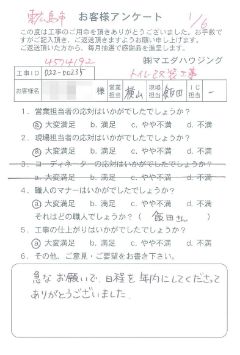 東広島市 お客様アンケート 1/6
この度は工事のご用命を頂きありがとうございました。お手数で
すがご記入頂き、ご返送頂きますようお願い申し上げます。
ご返送頂いた方から、毎月抽選で感謝品を進呈します。
4504192 ㈱マエダハウジング
工事ID 022-00235 トイレ改装工事
お客様名 様 営業担当 横山 現場担当 飯田 IC担当 -
1. 営業担当者の応対はいかがでしたでしょうか?
a.大変満足 b.満足 c.やや不満 d.不満
2. 現場担当者の応対はいかがでしたでしょうか?
a.大変満足 b.満足 c.やや不満 d.不満
3. コーディネーターの応対はいかがでしたでしょうか?
a.大変満足 b.満足 c.やや不満 d.不満
4. 職人のマナーはいかがでしたでしょうか?
a.大変満足 b.満足 c.やや不満 d.不満
それはどの職人でしょうか? ( 飯田さん )
5. 工事の仕上がりはいかがでしたでしょうか?
a.大変満足 b.満足 c.やや不満 d.不満
6. その他、ご意見・ご要望をお書き下さい。
急なお願いで、日程を年内にしてくださって
ありがとうございました。